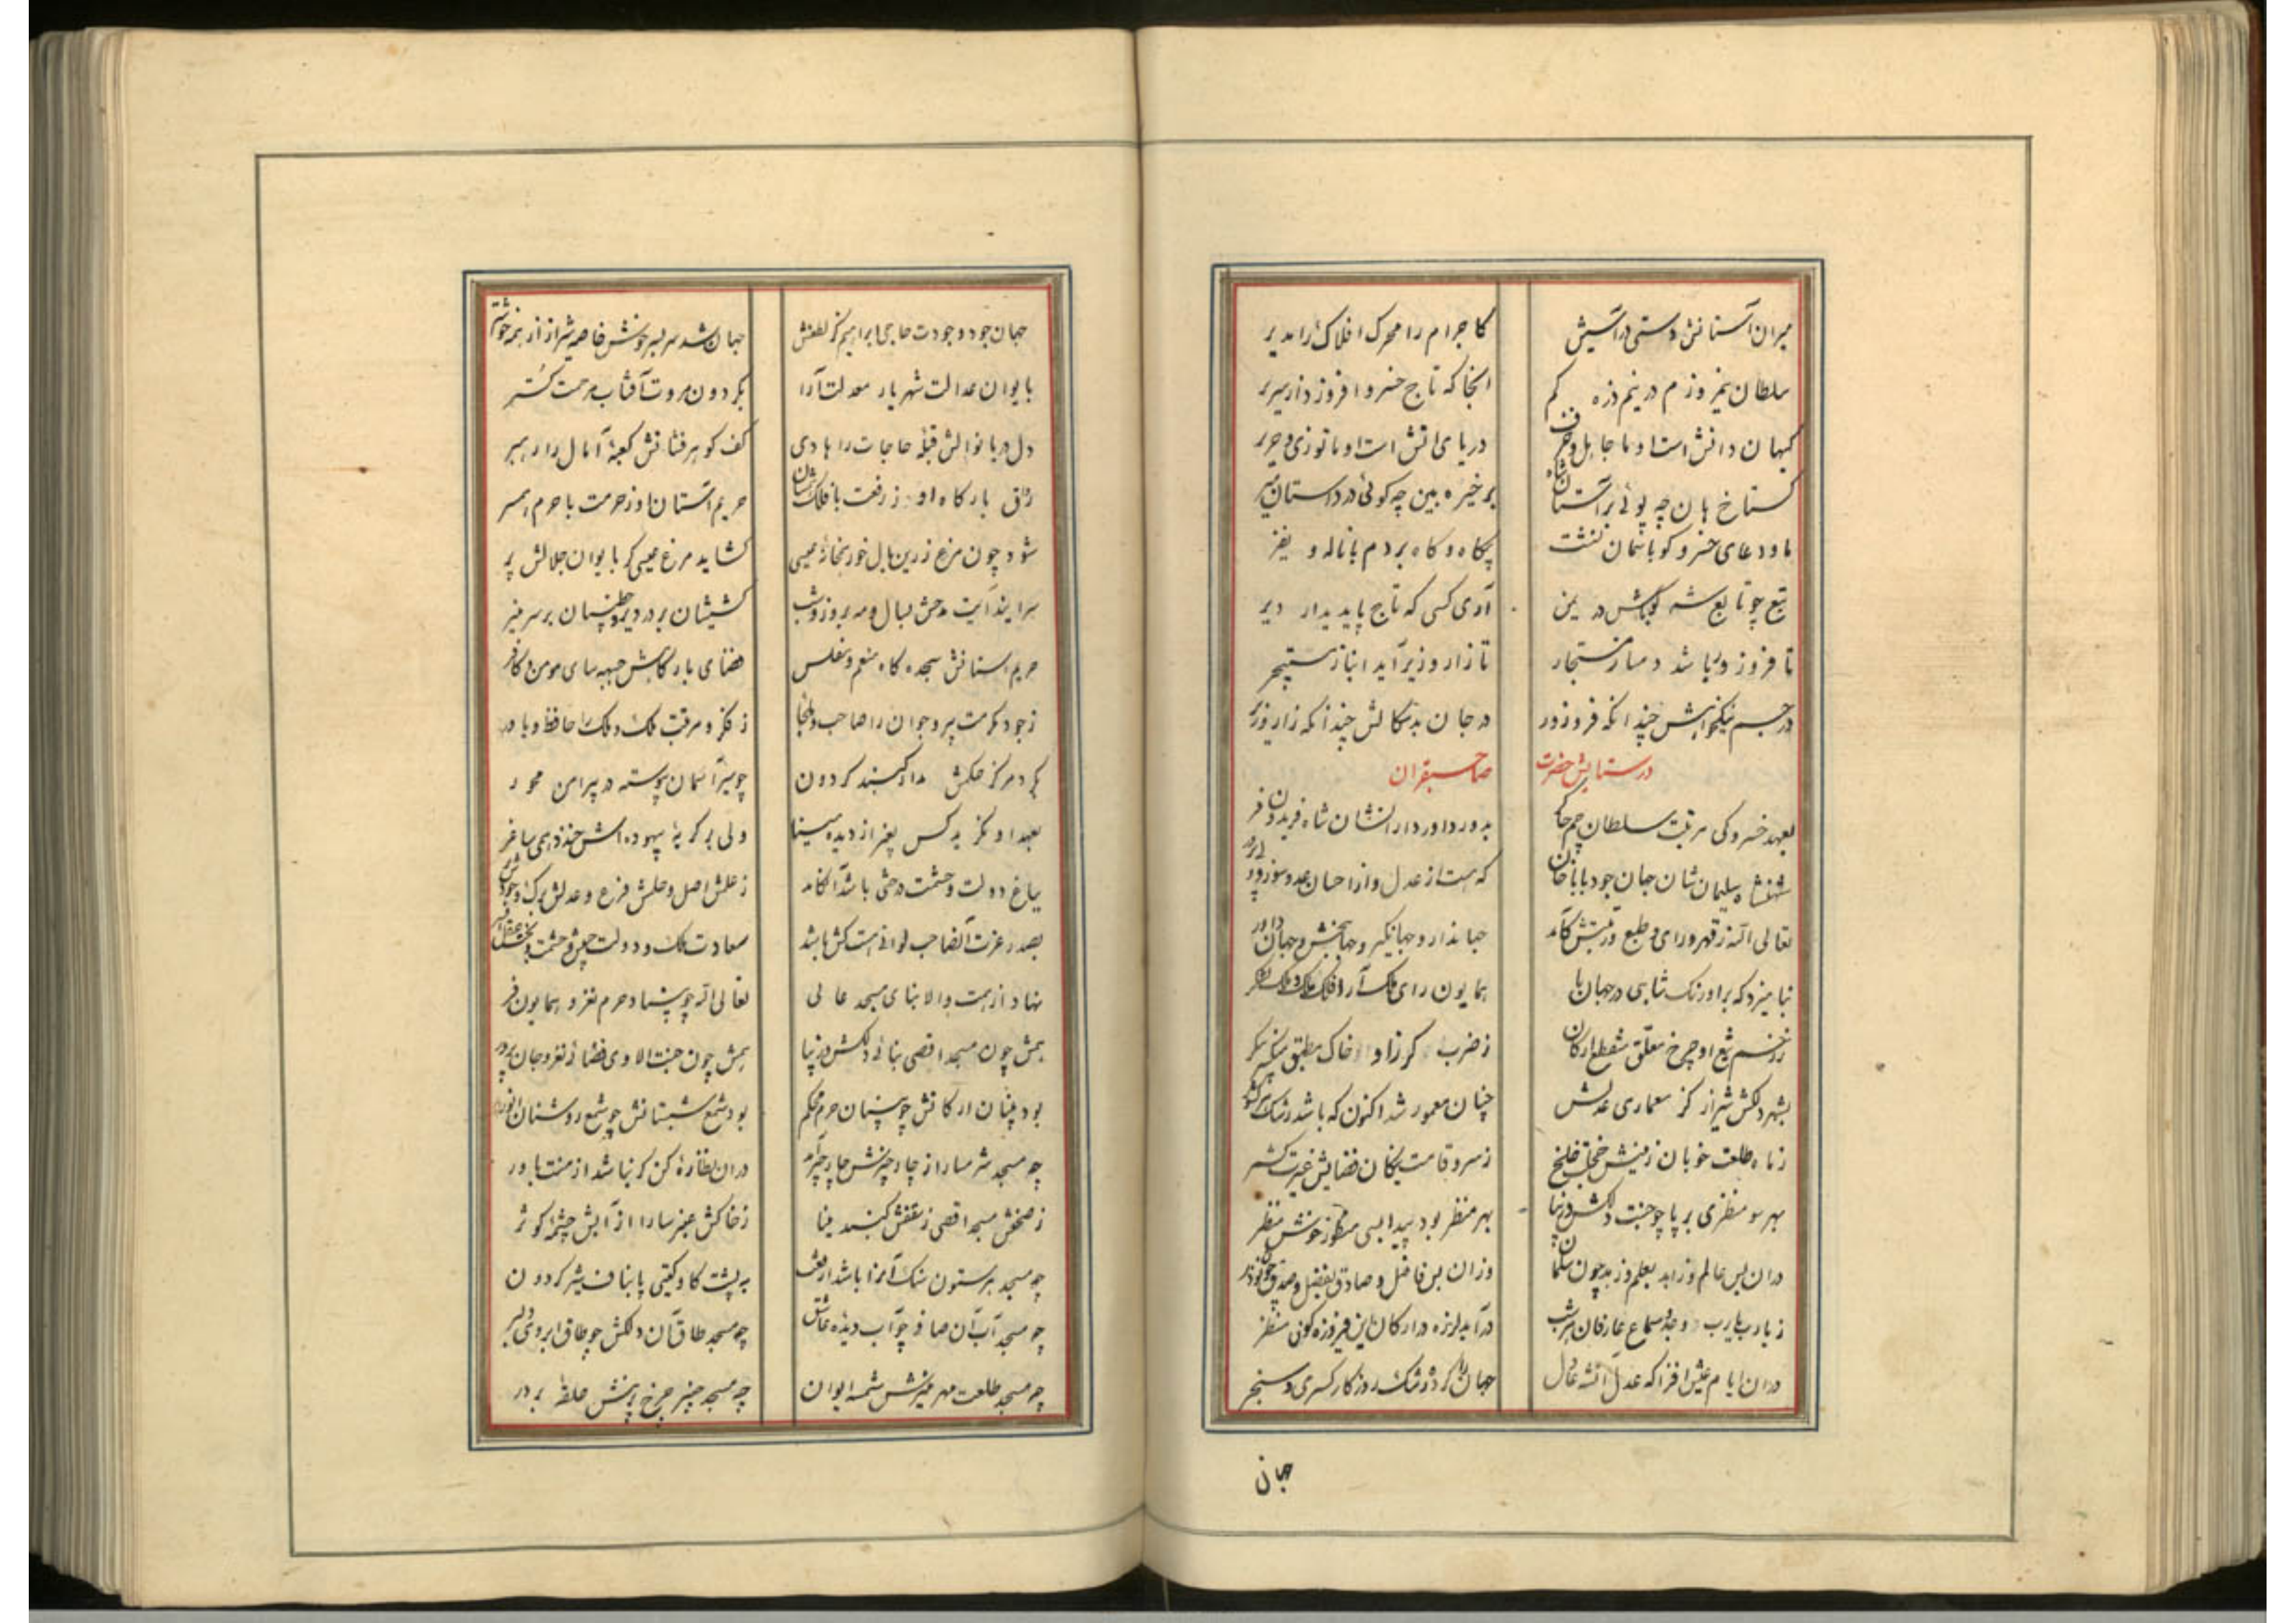 میران آستانش دستی در آستیش کاجرام را محرک افلاک را مدیر
سلطان نیمروزم در نیم ذره کم انجا که تاج خسرو افروز دار سریر
کیهان دانش است او ما جاهل و دریای اتش است او ما توزی و حریر
گستاخ هان چه پوئی بر آستان شاه برخیره بین چه کوئی در داستان میر
ما و دعای خسرو کو باسمان نشت پکاه و کاه بردم با ناله و
تبع چو تابع شه در یمن آری کسی که تاج پاید بدار دیر
تا فروز دربا شد دمساز مستجار تا زار و زیر آید انباز مستجیر
در جسم نیکخواهش چندانکه فروزور در جان بدسکالش چندانکه زار وزیر
در ستایش حضرت صاحبقران
بعهد خسرو کی مرتبت سلطان جم چاکر بدور داور دارانشان شاه فریدون فر
شهنشاه سلیمان شان جان جود باباخان که هست از عدل واز احسان
تعالی الله ز قهر و رای و طبع ورتبتش کآمد جهاندار و جهانگیر و جهانبخش و جهان داور
نیامیزد که بر اورنک شاهی در جهان با همایون رای ملک آرا فلک
ز تیغ او چرخ معلق ارکان ز ضرب کرز او خاک مطبق
بشهر دلکش شیراز کز معماری عدلش چنان معمور شد اکنون که باشد رشک هر کشور
ز ماه طلعت خوبان زمینش خجلت خلخ ز سرو قامت فضایش غیرت کشمر
بهر سو منظری برپا چو جنت دلکش و زیبا بهر منظر بود پیدا بسی منظور خوش منظر
دران بس عالم و زاهد بعلم و زهد چون سلمان وزان بس فاضل و صادق بفضل و صدق چون بوذر
ز یارب یارب و وجد و سماع عارفان هر شب درآید لرزه در ارکان این فیروزه کون منظر
دران ایام عیش افزا که عدل جهان را کرد رشک روزکار کسری و سنجر
جهان
جهان جود و جودت حاجی ابراهیم کز لطفش جهان شد سربسر خوش خاصه شیراز از همه خوشتر
بایوان عدالت شهریار معدلت آرا بکردون مروت آفتاب مرحمت کستر
دل دریا نوالش قبله حاجات را هادی کف کوهر فشانش کعبه آمال را رهبر
رواق بارکاه او ز رفعت با فلک حریم آستان او ز حرمت با حرم همسر
شود چون مرغ زرین بال خور عیسی کشاید مرغ عیسی کر بایوان جلالش پر
سرایند آیت مدحش بسال و مه بروز و شب کشیشان بر در دیر و خطیبان بر سر منبر
حریم استانش سجده کاه منعم و مفلس فضای بارکاهش جبهه سای مومن و کافر
ز جود و مکرمت پیر و جوان را صاحب و ملجا ز فکر و مرقبت ملک و ملک را حافظ و یاور
بکرد مرکز حکمش مدار کنبد کردون چو سیر آسمان پیوسته در پیرامن محور
بعهد او نکرید کس بغیر از دیده مینا ولی بر کریه بیهوده اش خندد همی ساغر
بباغ دولت و حشمت درختی باشد آنکامد ز علمش اصل و حلمش فرع و عدلش برک و جودش بر
بصدر عزت آنصاحب لوائی هست کش باشد سعادت ملک و دولت جیش و حشمت
نهاد از همت والا بنای مسجد عالی تعالی الله چو بنیاد حرم نغز و همایون فر
بهش چون مسجد اقصی بنائی دلکش و زیبا بهش چون جنت الماوی فضائی نغز و جان پرور
بود بنیان ارکانش چو بنیان حرم محکم بود شمع شبستانش چو شمع روشنان انور
چه مسجد شرمسار از چار چیزش چار چیز آمد دران نظاره کن کر نباشد از منت باور
ز صحنش مسجد اقصی ز سقفش کنبد مینا ز خاکش عنبر سارا از آبش چشمه کوثر
چه مسجد هر ستون سنک آنرا باشد از رفعت به پشت کاو کیتی پا بناف شیر کردون
چه مسجد آب آن صاف چو آب دیده عاشق چه مسجد طاق آن دلکش چو طاق ابروی دلبر
چه مسجد طلعت مهر منیرش شمسه ایوان چه مسجد چنبر چرخ حلقه بر در